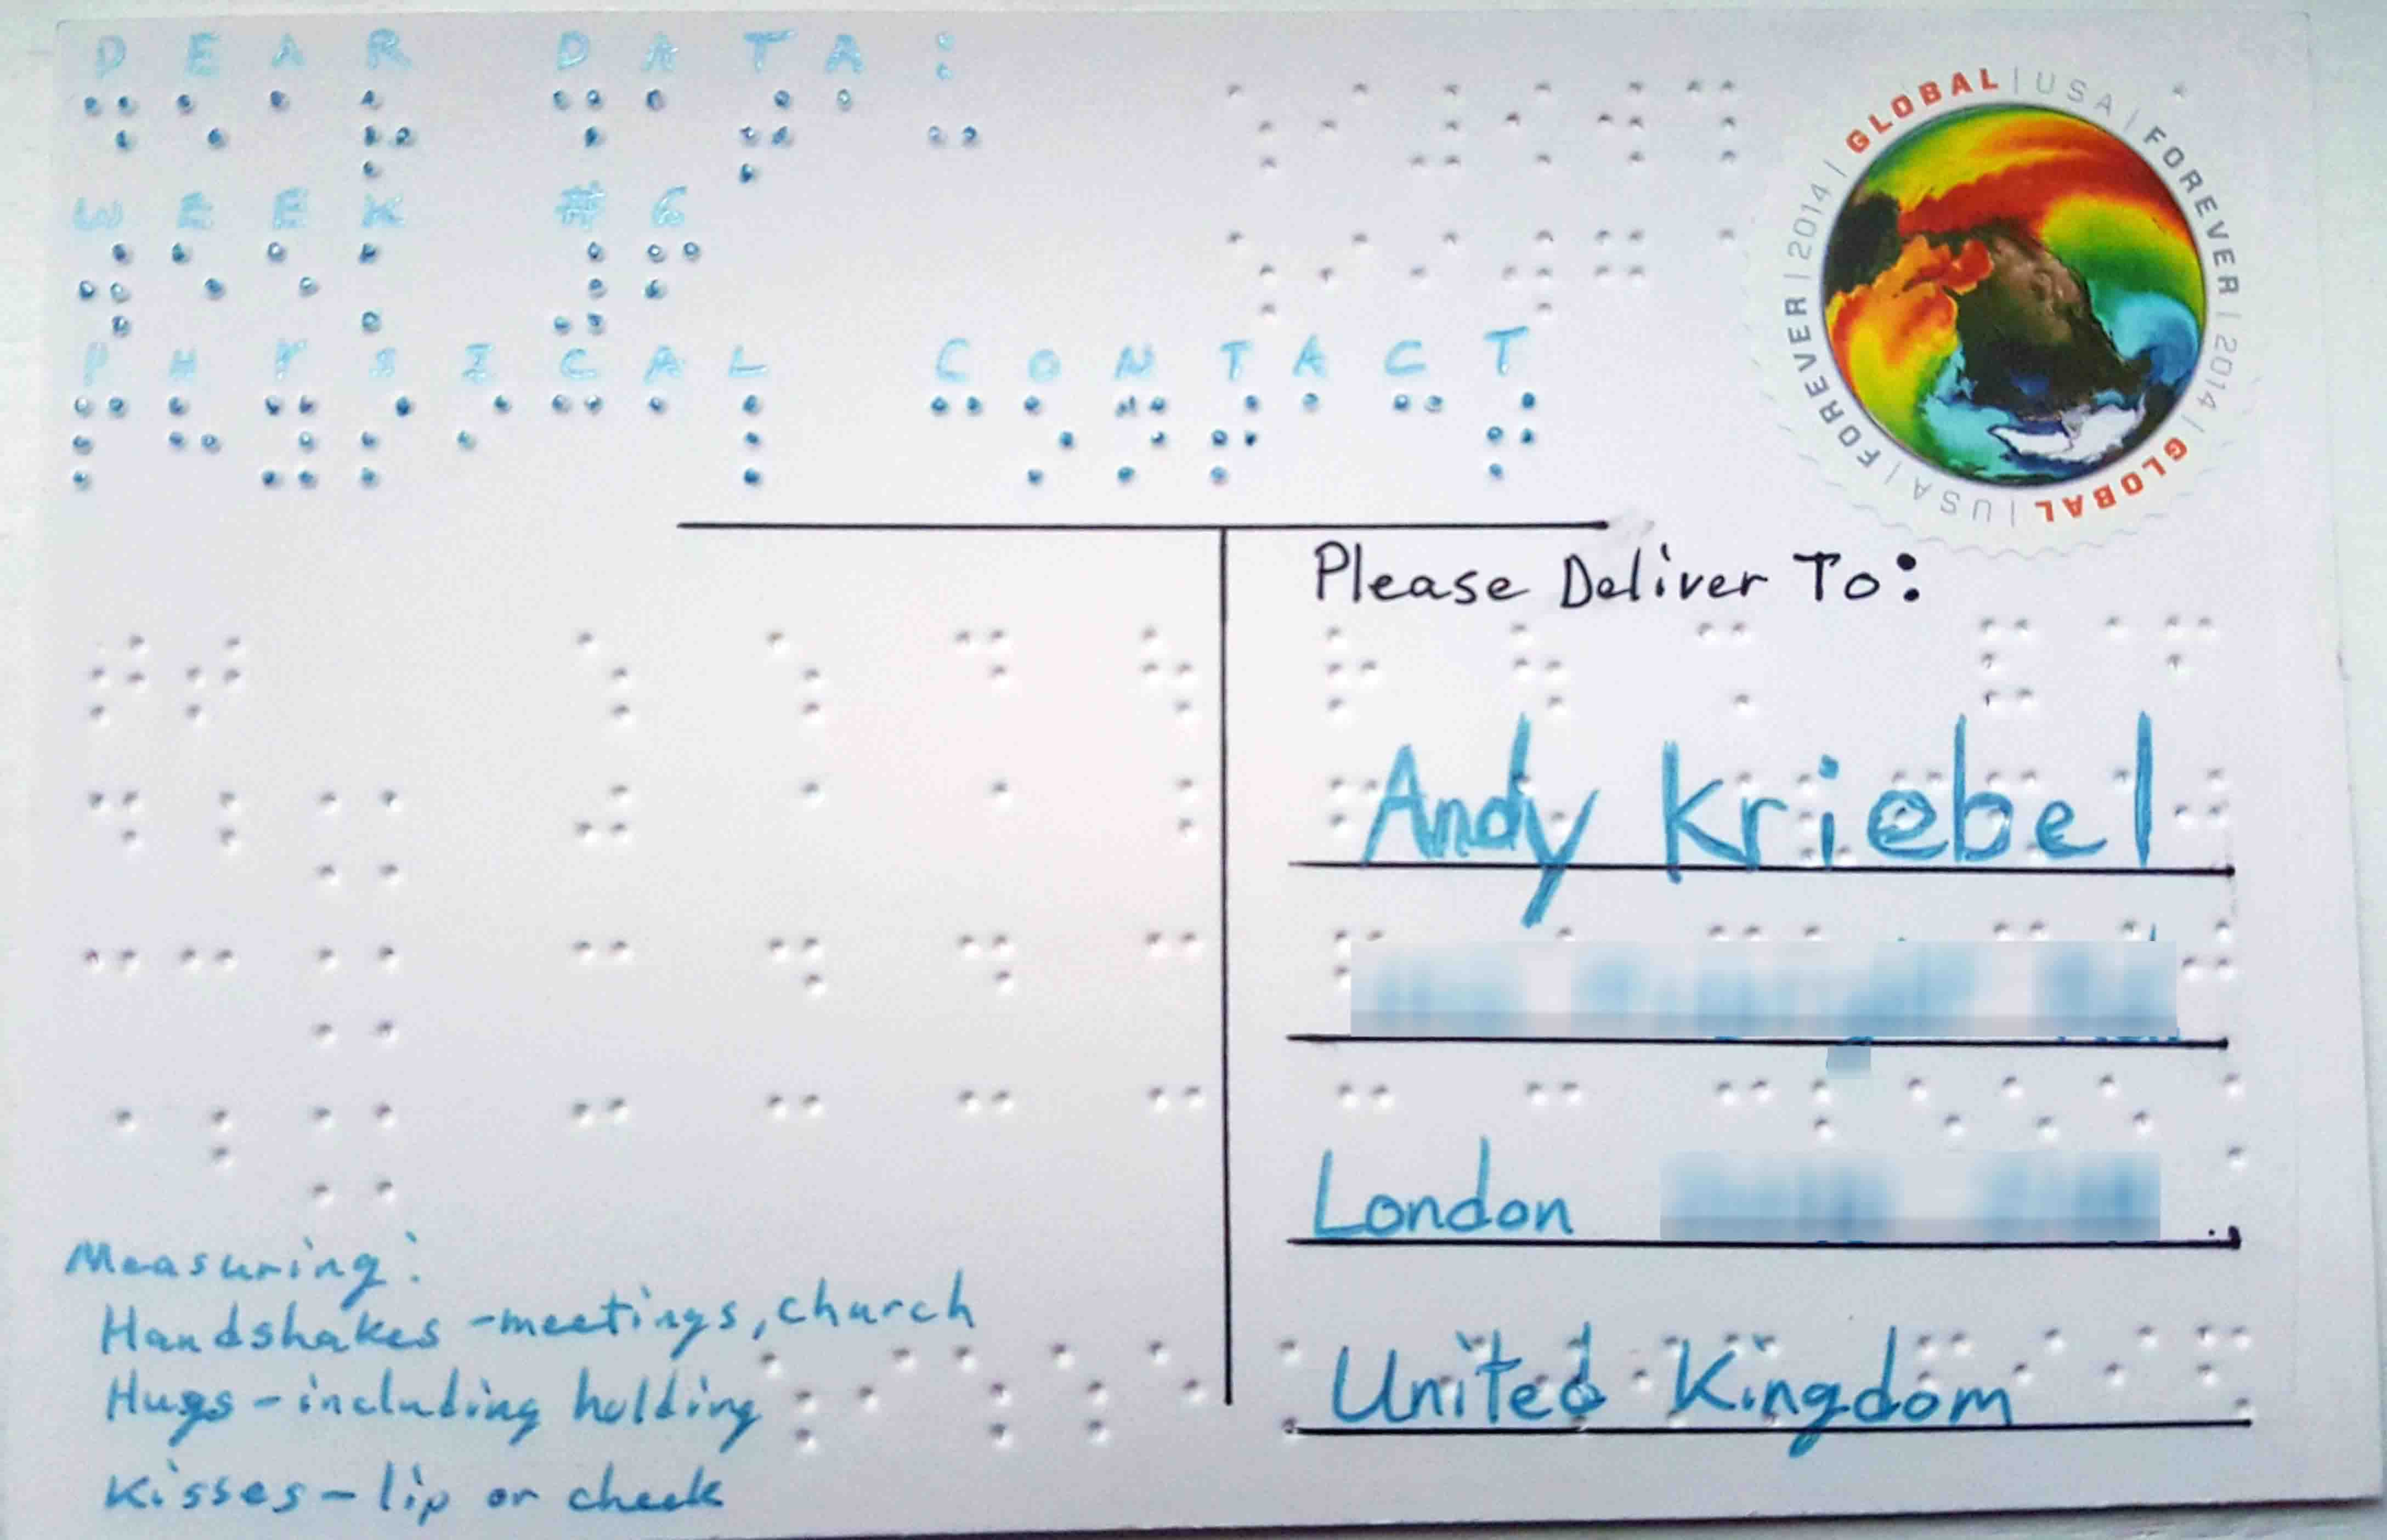 DEAR DATA:
WEEK #6
PHYSICAL CONTACT
GLOBAL | USA | FOREVER | 2014 | GLOBAL | USA | FOREVER | 2014 |
Please Deliver To:
Andy Kriebel
London
United Kingdom
Measuring:
Handshakes - meetings, church
Hugs - including holding
Kisses - lip or cheek